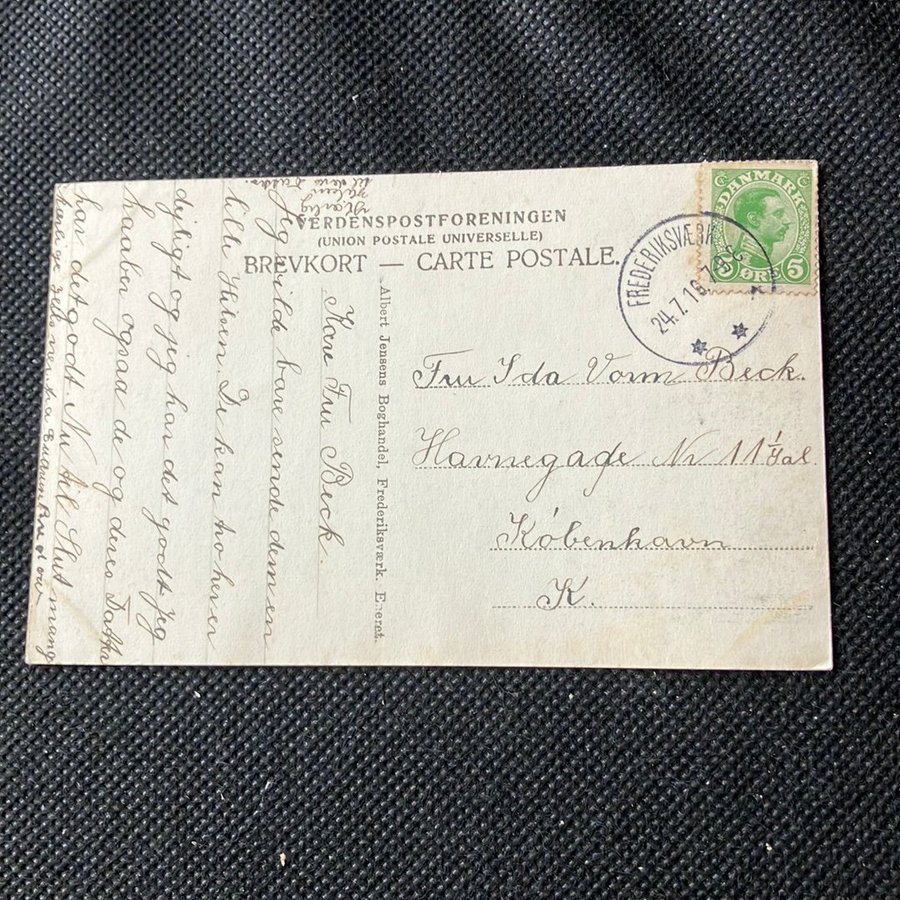 VERDENSPOSTFORENINGEN
(UNION POSTALE UNIVERSELLE)
BREVKORT — CARTE POSTALE.
DANMARK
5 ØRE 5
FREDERIKSVÆRK
24.7.19
Fru Ida Vorm Beck.
Havnegade Nr 11 1/Sal.
København
K.
Albert Jensens Boghandel, Frederiksværk. Eneret.
Kære Fru Beck.
Jeg vilde bare sende dem en
lille Hilsen. De kan tro her er
dejligt og jeg har det godt. Jeg
haaber ogsaa de og deres Datter
har det godt. Nu til Slut mange
kærlige
fra
til deres